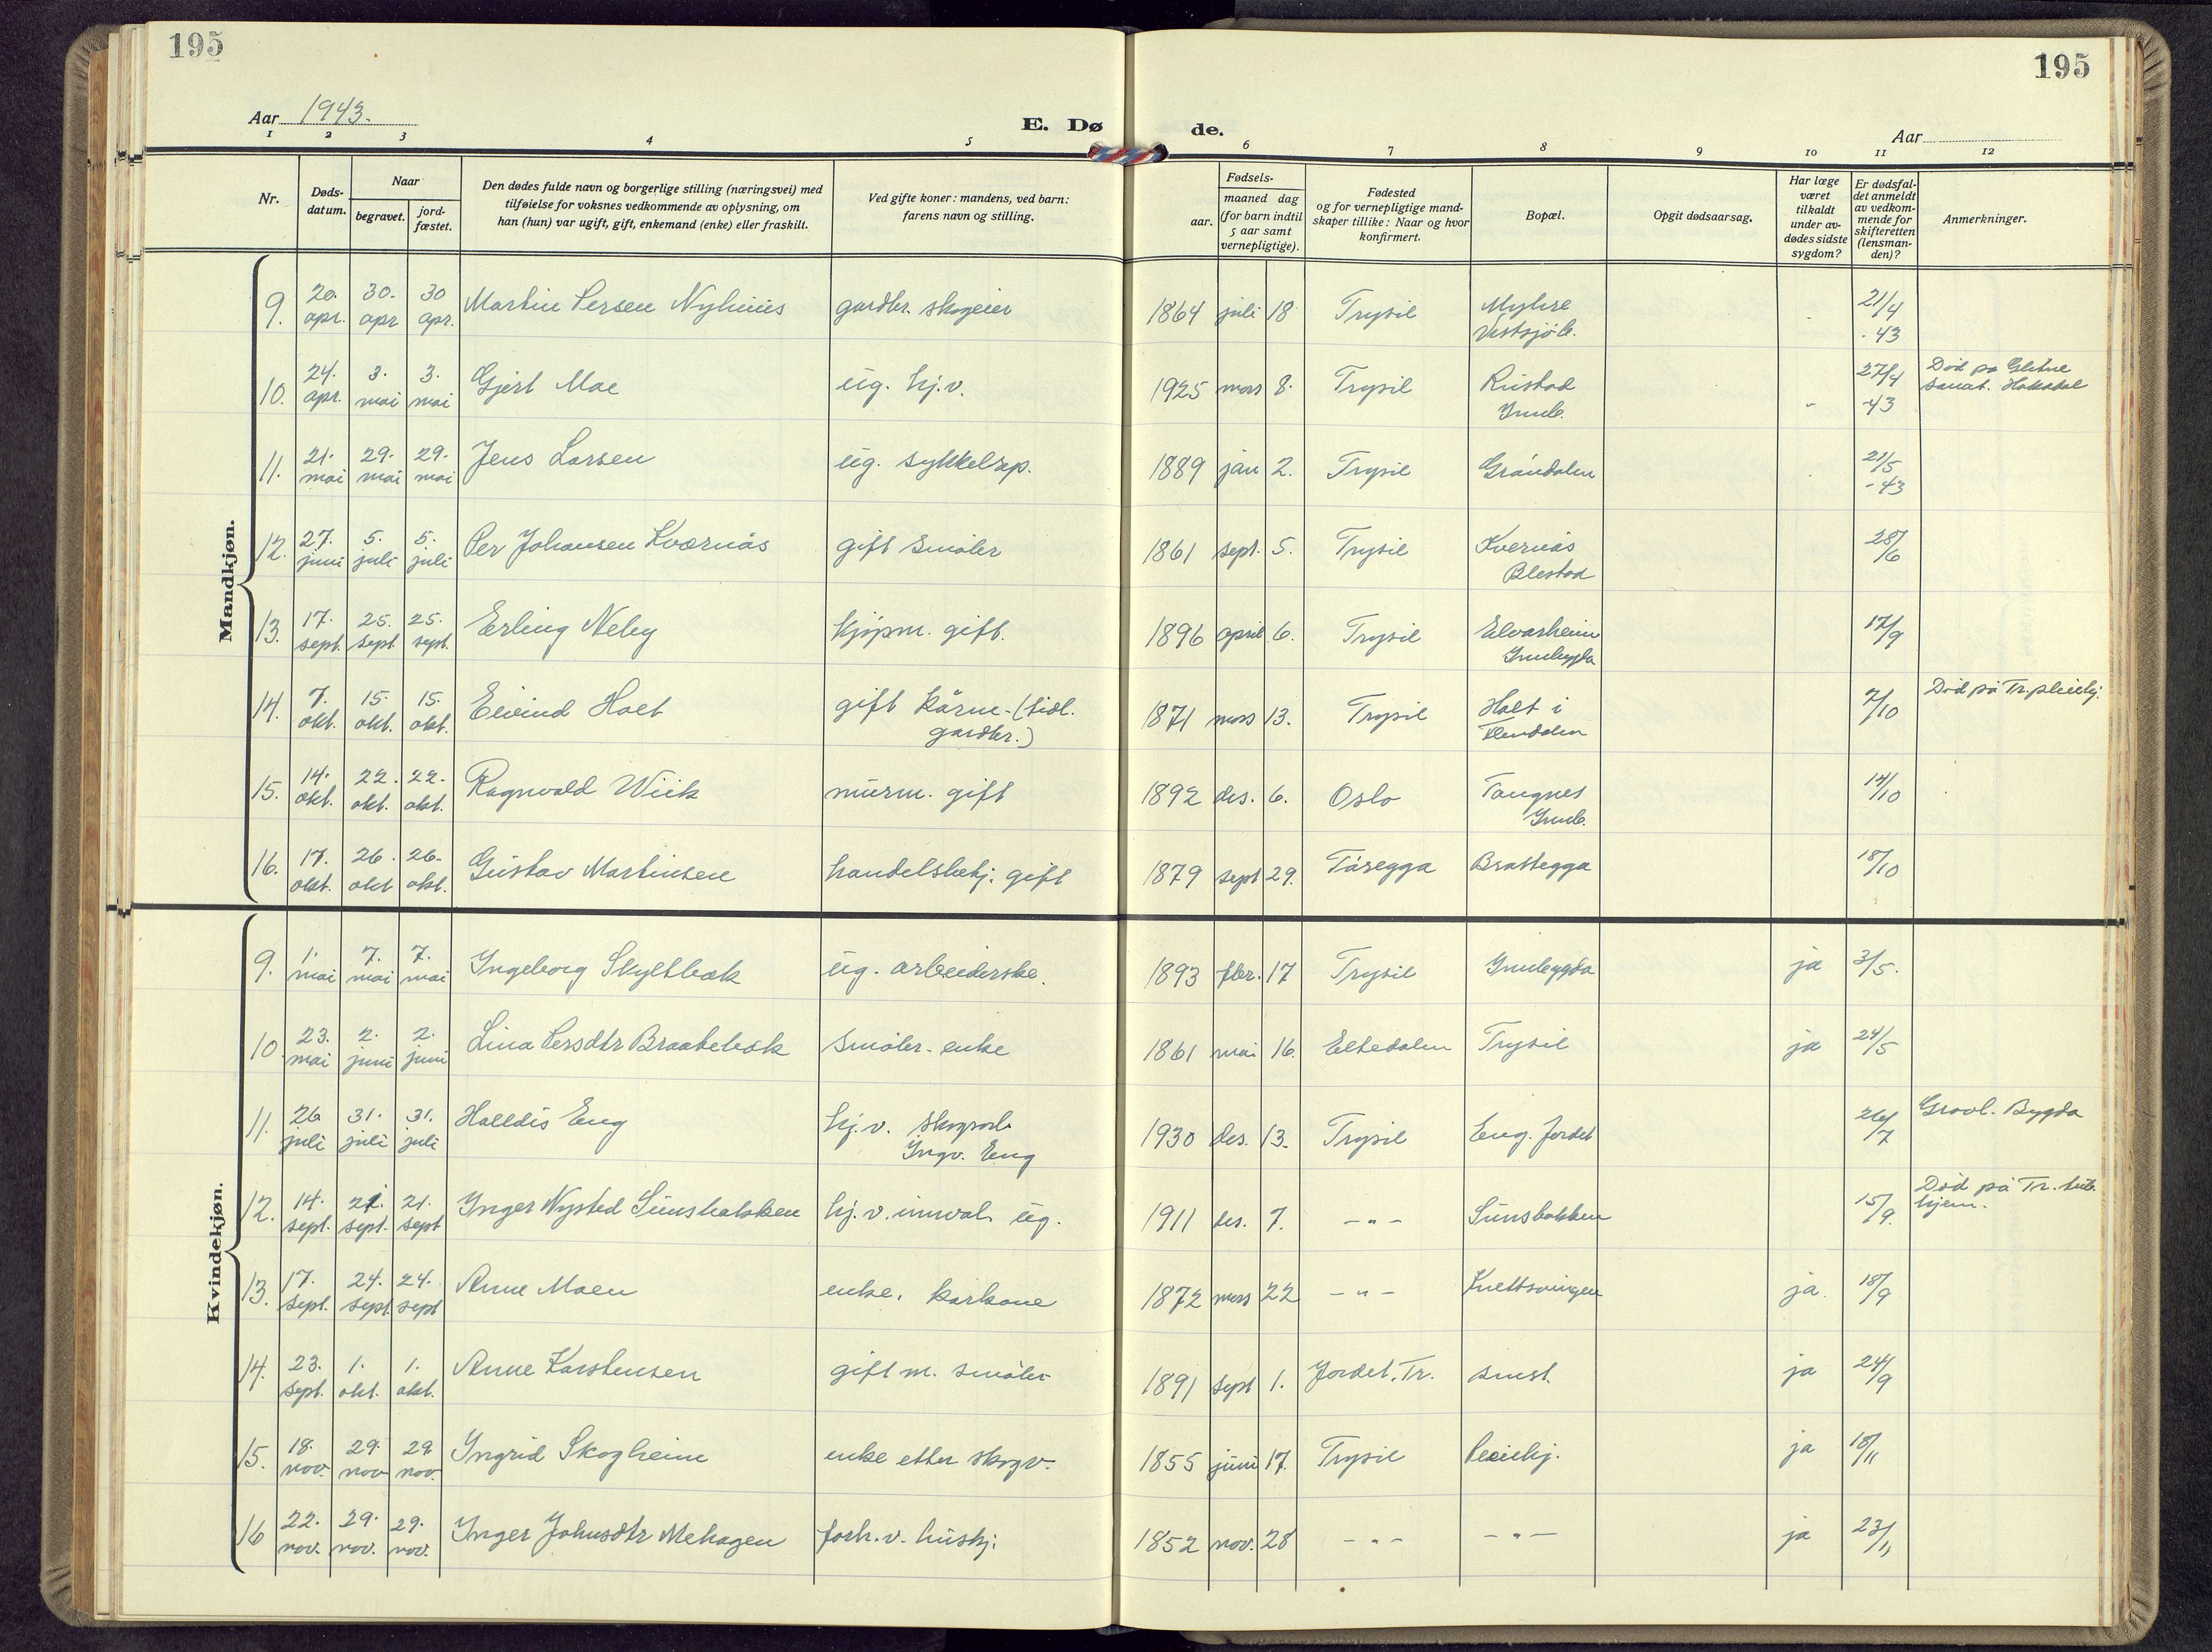 195
195
Aar 1943.
E. Døde.
Aar
1 2 3 4 5 6 7 8 9 10 11 12
Nr.
Døds-datum.
Naar
begravet.
jord-fæstet.
Den dødes fulde navn og borgerlige stilling (næringsvei) med
tilføielse for voksnes vedkommende av oplysning, om
han (hun) var ugift, gift, enkemand (enke) eller fraskilt.
Ved gifte koner: mandens, ved barn:
farens navn og stilling.
Fødsels-
aar.
maaned dag
(for barn indtil
5 aar samt
vernepligtige).
Fødested
og for vernepligtige mand-
skaper tillike: Naar og hvor
konfirmert.
Bopæl.
Opgit dødsaarsag.
Har læge
været
tilkaldt
under av-
dødes sidste
sygdom?
Er dødsfal-
det anmeldt
av vedkom-
mende for
skifteretten
(lensman-
den)?
Anmerkninger.
Mandkjøn.
9. 20. apr. 30. apr 30 apr. Martin Persen Nyhuus gardbr. skogeier 1864 juli 18 Trysil Myhre Vestsjøb. 21/4 -43
10. 24. apr. 3. mai 3. mai Gjert Moe ug. hj.v. 1925 mars 8. Trysil Rustad Innb. 27/4 -43 Død på Glitne sanat. Hakadal
11. 21. mai 29. mai 29. mai Jens Larsen ug. sykkelrep. 1889 jan 2. Trysil Grøndalen 21/5 -43
12. 27. juni 5. juli 5. juli Per Johansen Kværnås gift småbr 1861 sept. 5. Trysil Kvernås Blestad 28/6
13. 17. sept. 25. sept. 25. sept. Erling Neby kjøpm. gift. 1896 april 6. Trysil Elvarheim Innbygda 17/9
14. 7. okt. 15. okt. 15. okt. Eivind Holt gift kårm. (tidl. gardbr.) 1871 mars 13. Trysil Holt i Flendalen 7/10 Død på Tr. pleiehj.
15. 14. okt. 22. okt. 22. okt. Ragnvald Wiik murm. gift 1892 des. 6. Oslo Tangnes Innb. 14/10
16. 17. okt. 26. okt 26. okt. Gustav Martinsen handelsbetj. gift 1879 sept 29. Tåregga Brattegga 18/10
Kvindekjøn.
9. 1. mai 7. mai 7. mai Ingeborg Skyltbæk ug. arbeiderske. 1893 febr. 17 Trysil Innbygda ja 3/5.
10. 23. mai 2. juni 2. juni Lina Persdtr Braatebæk småbr. enke 1861 mai 16. Eltedalen Trysil ja 24/5
11. 26 juli 31. juli 31. juli Halldis Eng hj.v. skogsarb. Ingv. Eng 1930 des. 13. Trysil Eng. Jordet 26/7 Gravl. Bygda
12. 14. sept. 21. sept. 21. sept Inger Nysted Sunsbakken hj.v. innval. ug. 1911 des. 7. -"- Sunsbakken 15/9. Død på Tr. tub. hjem.
13. 17. sept. 24. sept 24. sept Anne Moen enke. kårkone 1872 mars 22 -"- Knettsvingen ja. 18/9
14. 23. sept. 1. okt. 1. okt. Anne Karstensen gift m. småbr 1891 sept 1. Jordet, Tr. smst. ja 24/9
15. 18. nov. 29. nov 29 nov. Ingrid Skogheim enke etter skogv. 1855 juni 17. Trysil Pleiehj. ja 18/11
16 22. nov. 29. nov. 29. nov. Inger Johnsdtr Mehagen forh.v. hushj. 1852 nov. 28 -"- -"- ja 23/11